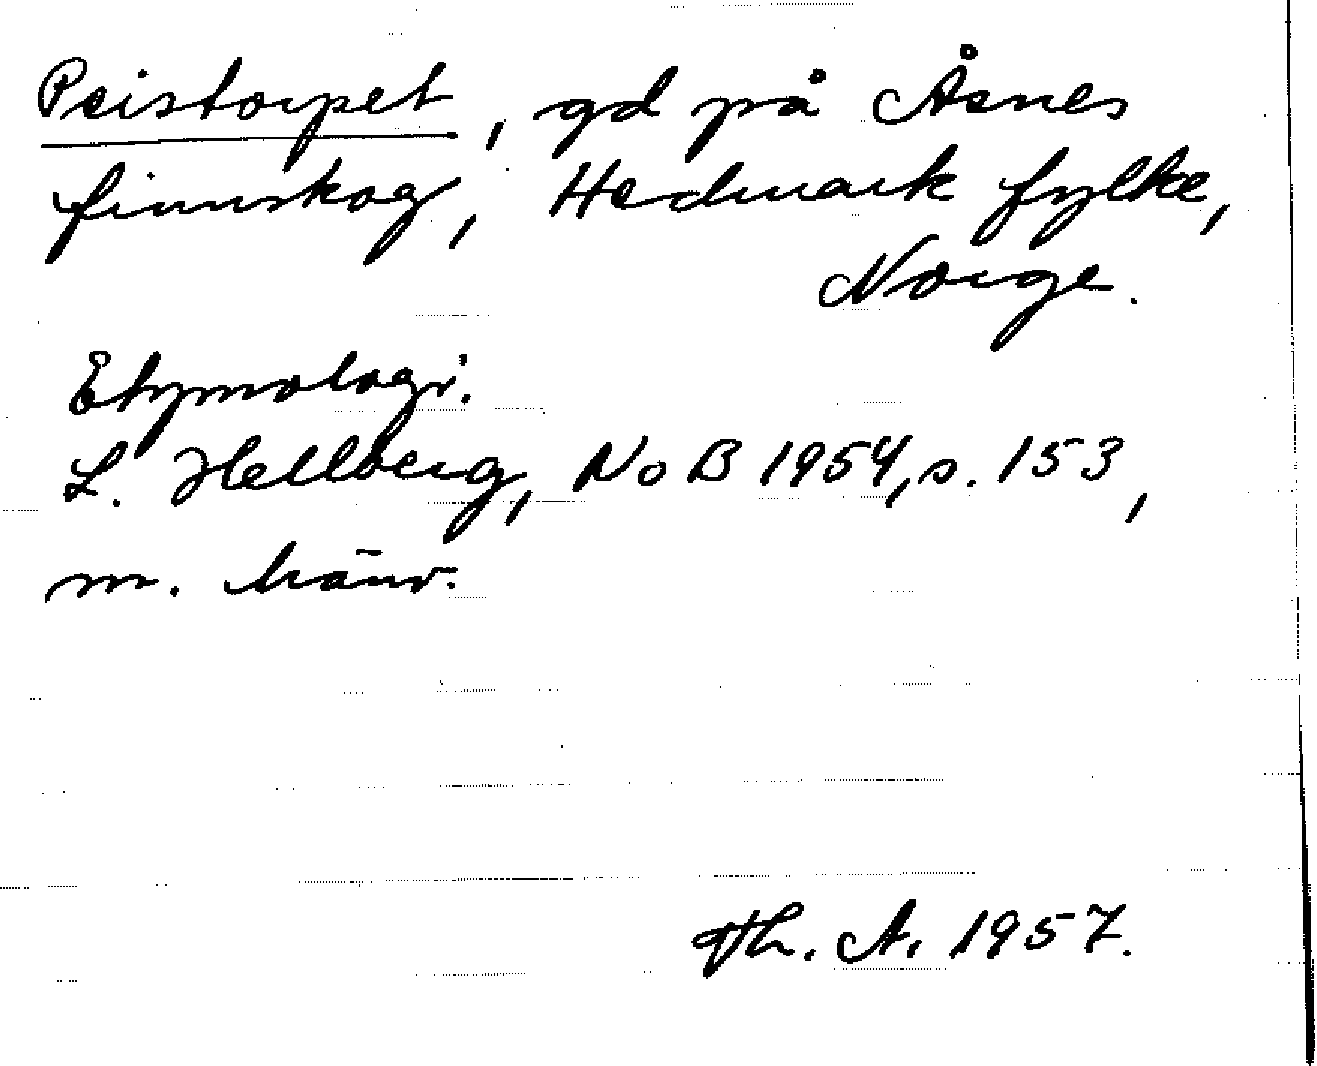 Peistorpet, gd på Åsnes
finnskog, Hedmark fylke,
Norge.
Etymologi.
L. Hellberg, NoB 1954, s. 153,
m. hänv.
Th. A. 1957.